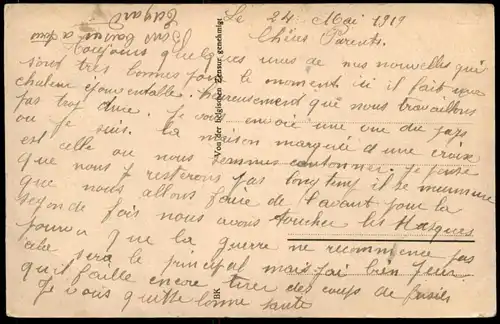 Le 24 Mai 1919
Chères Parents.
Toujours quelques unes de nos nouvelles qui
sont tres bonnes pour le moment ici il fait une
chaleur épouventable. heureusement que nous travaillons
pas trop dure. Je vous envoie une vue du pays
ou je suis. la maison marquée d'une croix
est celle ou nous sommes cantonner. Je pense
que nous y resterons pas longtemp il se murmure
que nous allons faire de l'avant pour la
segonde fois nous avons toucher les Masques
pourvu que la guerre ne recommence pas
cela sera le principal mais j'ai bien peur
qu'il faille encre tirer des coups de fusils
Je vous quitte bonne santé
Bons baisers a tous
Edgard
Von der Belgischen Zensur genehmigt
BK